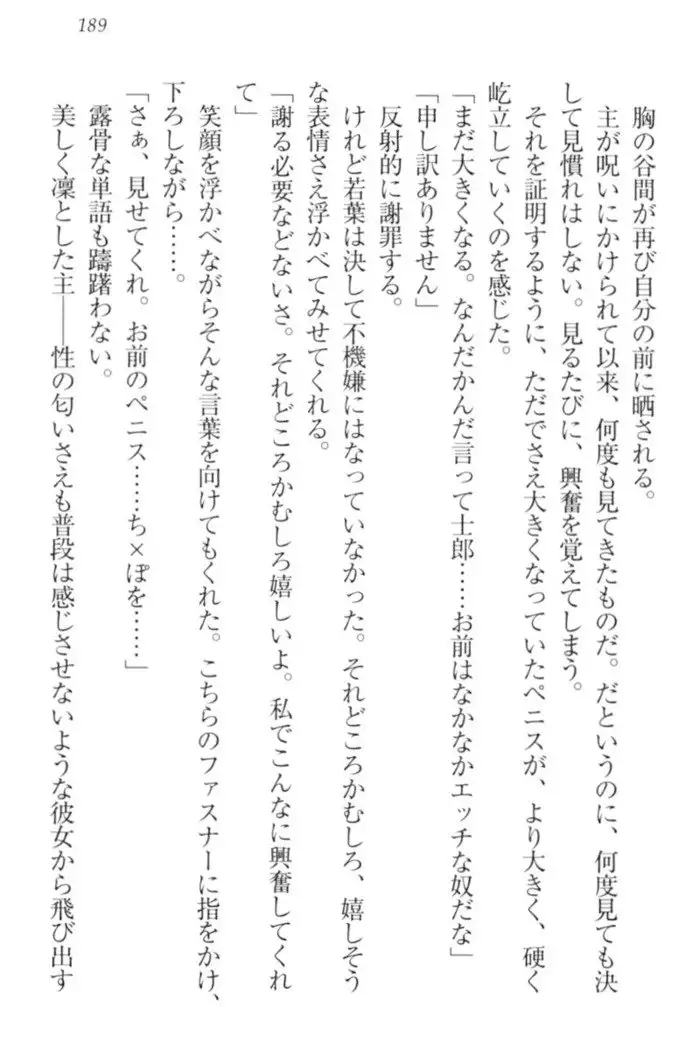 189
胸の谷間が再び自分の前に晒される。
主が呪いにかけられて以来、何度も見てきたものだ。だというのに、何度見ても決
して見慣れはしない。見るたびに、興奮を覚えてしまう。
それを証明するように、ただでさえ大きくなっていたペニスが、より大きく、硬く
屹立していくのを感じた。
「まだ大きくなる。なんだかんだ言って士郎……お前はなかなかエッチな奴だな」
「申し訳ありません」
反射的に謝罪する。
けれど若葉は決して不機嫌にはなっていなかった。それどころかむしろ、嬉しそう
な表情さえ浮かべてみせてくれる。
「謝る必要などないさ。それどころかむしろ嬉しいよ。私でこんなに興奮してくれ
て」
笑顔を浮かべながらそんな言葉を向けてもくれた。こちらのファスナーに指をかけ、
下ろしながら……。
「さぁ、見せてくれ。お前のペニス……ち×ぽを……」
露骨な単語も躊躇わない。
美しく凜とした主――性の匂いさえも普段は感じさせないような彼女から飛び出す